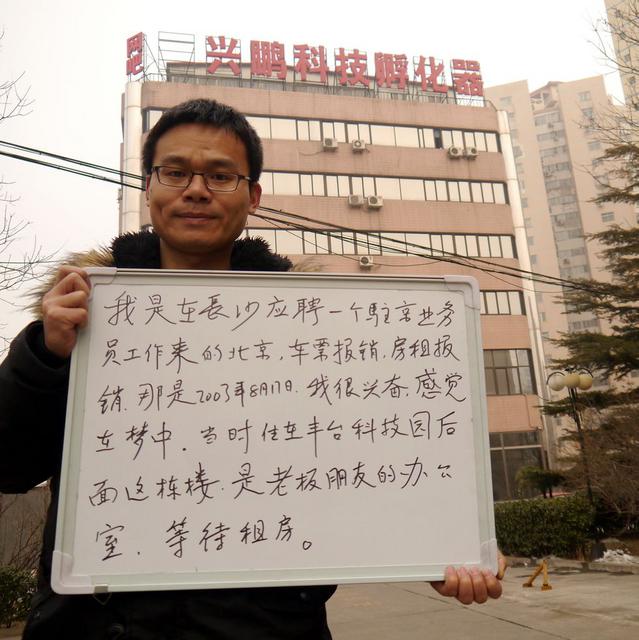 网吧
兴鹏科技孵化器
我是在長沙应聘一个駐京业务
员工作来的北京,车票报销,房租报
销.那是2003年8月17日.我很兴奋,感觉
在梦中.当时住在丰台科技园后
面这栋楼.是老板朋友的办公
室.等待租房。